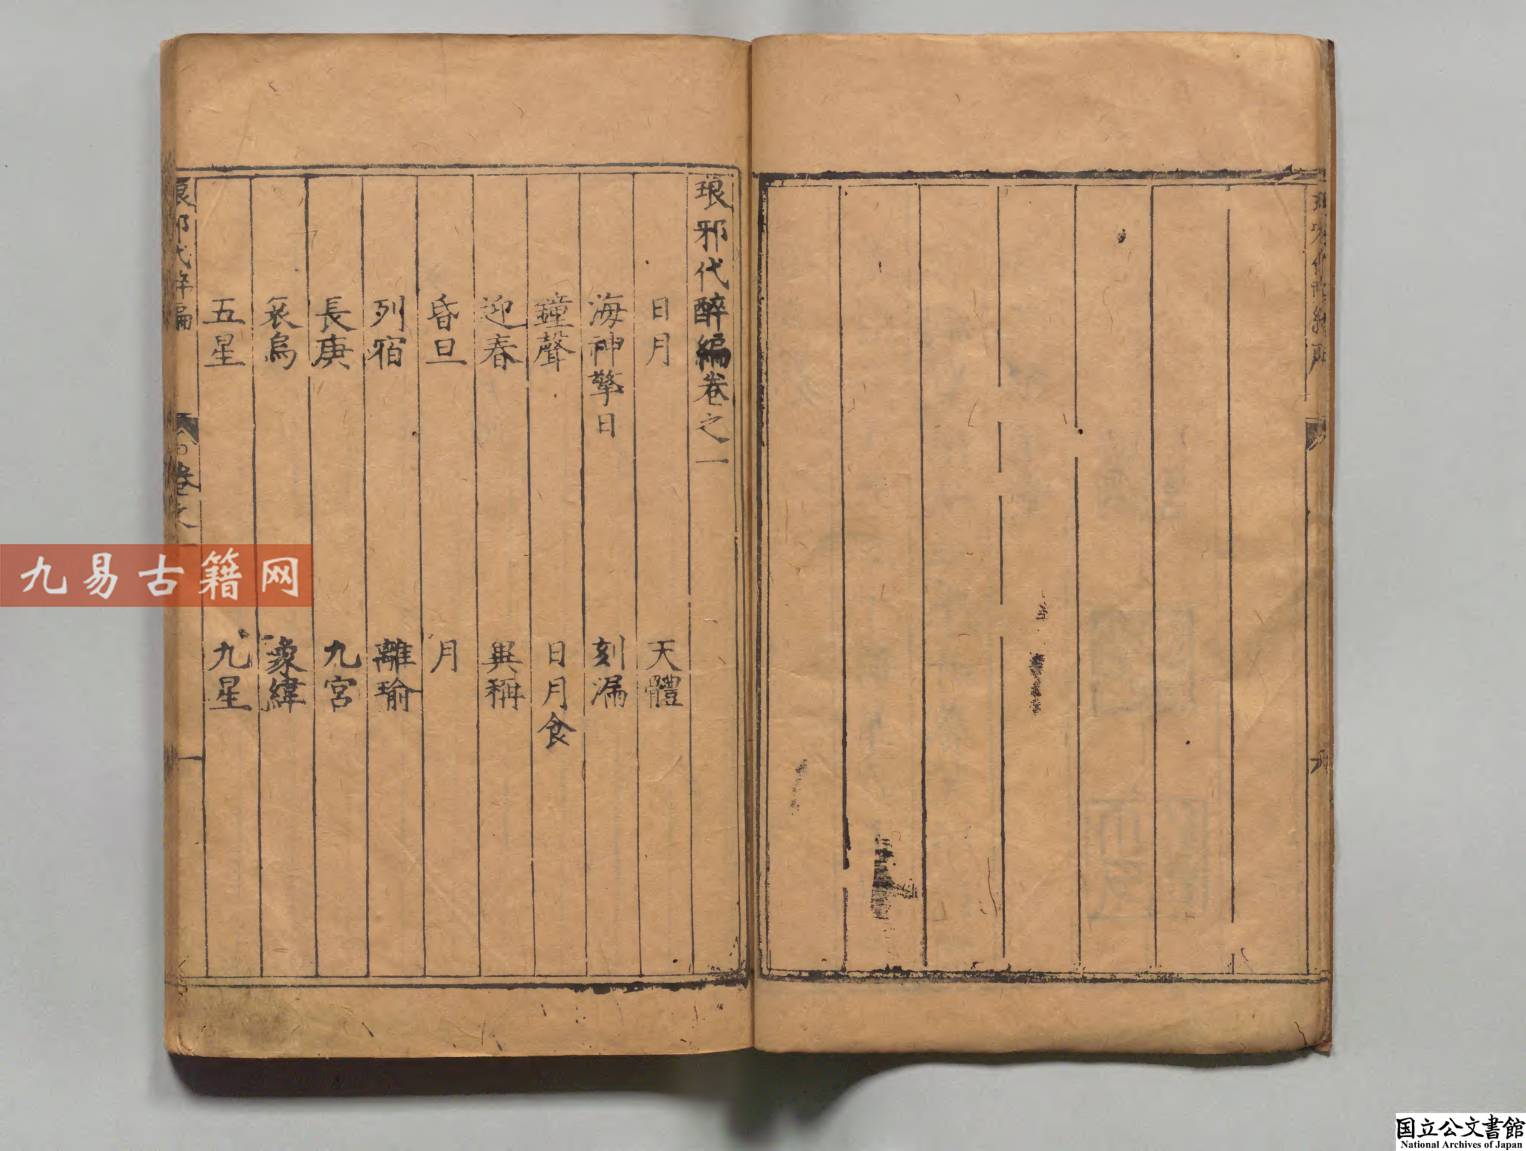 琅邪代醉編卷之一
日月 天體
海神擎日 刻漏
鐘聲 日月食
迎春 異稱
昏旦 月
列宿 離瑜
長庚 九宮
象緯
五星 九星
琅邪代醉編 卷之一
九易古籍网
国立公文書館
National Archives of Japan